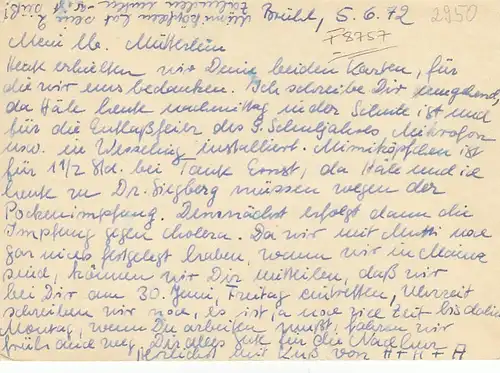 Brühl, 5.6.72
2950
F 8757
Mein lb. Mütterlein
Heute erhielten wir Deine beiden Karten, für
die wir uns bedanken. Ich schreibe Dir umgehend,
da Häle heute nachmittag in der Schule ist und
für die Entlaßfeier des 9. Schuljahres, Mikrofon
usw. in Wesseling installiert. Mimiköpfchen ist
für 1 1/2 Std. bei Tante Ernst, da Häle und ich
heute zu Dr. Siegberg müssen wegen der
Pockenimpfung. Demnächst erfolgt dann die
Impfung gegen Cholera. Da wir mit Mutti noch
gar nichts festgelegt haben, wann wir in Mainz
sind, können wir Dir mitteilen, daß wir
bei Dir am 30. Juni, Freitag eintreffen, Uhrzeit
schreiben wir noch, es ist ja noch viel Zeit bis dahin
Montag, wenn Du arbeiten mußt, fahren wir
früh auch weg. Dir alles gute für die
Herzlichst mit Kuß von H + H + H